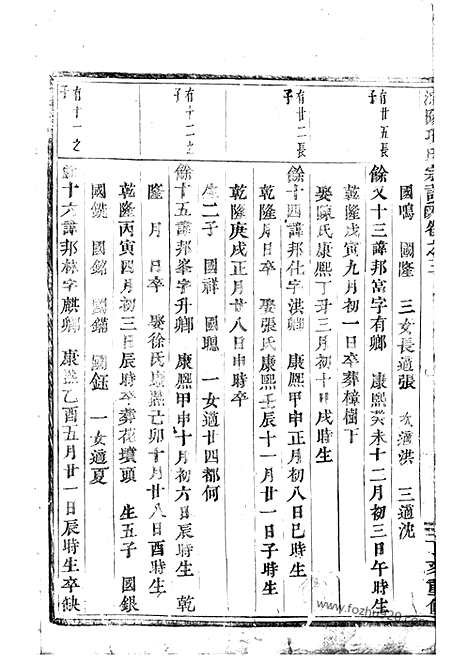 宗譜 卷之三
國鳴 國隆 三女長適張 次適洪 三適沈
有廿五長子
餘又十三諱邦富字有卿 康熙癸未十二月初三日午時生
乾隆戊寅九月初一日卒葬樟樹下
娶陳氏康熙丁丑三月初十日戌時生
有廿二長子
餘十四諱邦仕字洪卿 康熙甲申正月初八日巳時生
乾隆 月日卒 娶張氏康熙壬辰十一月廿一日子時生
乾隆庚戌正月廿八日申時卒
生二子 國祥 國聰 一女適廿四都何
有十二之子
餘十五諱邦峯字升卿 康熙甲申十月初六日辰時生 乾
隆 月日卒 娶徐氏康熙己卯十月廿八日酉時生
乾隆丙寅四月初三日辰時卒葬花墳頭 生五子 國銀
國銑 國銘 國鏋 國鈺 一女適夏
有十一之子
餘十六諱邦林字麒卿 康熙乙酉五月廿一日辰時生卒缺
重修
www.fozhu920.com